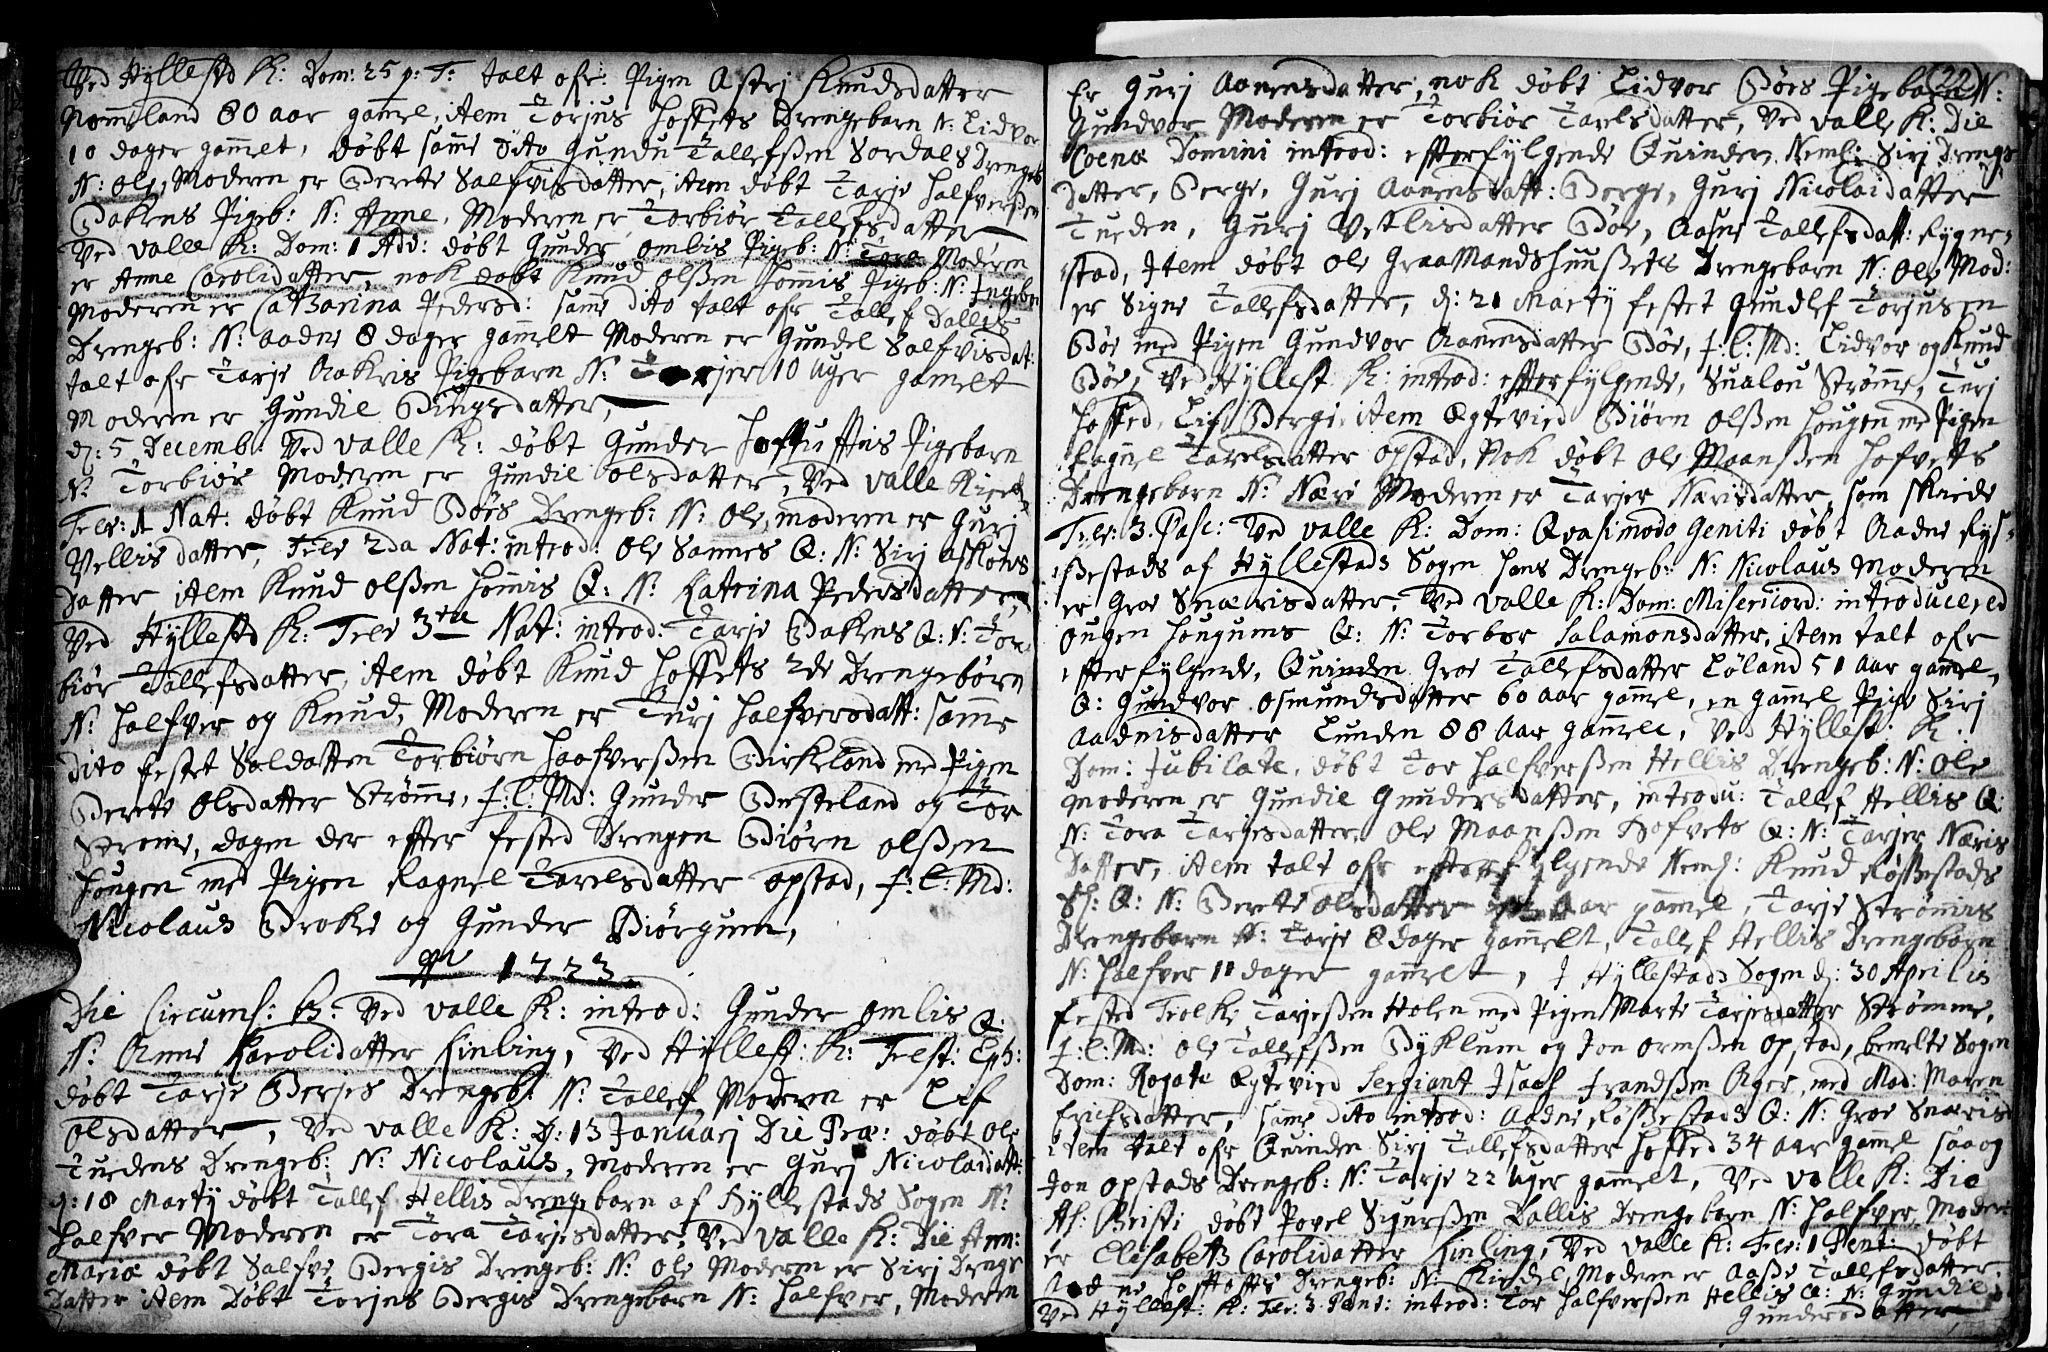 Ved Hyllestd K: Dom: 25 p: T: talt ofr: Pigen Astri Knudsdatter
Nomeland 80 aar gamel, item Torjus Hoffets Drengebarn N: Lidvor
10 dager gamelt, døbt samme dito Gundu Tallefsen Sordals Drengeb
N: Ole, Moderen er Berete Salfvisdatter, item døbt Tarje Halfversen
Bakens Pigeb: N: Anne, Moderen er Torbiør Tallefsdatter
Ved Valle K: Dom: 1 Adv: døbt Gunder Omlis Pigeb: N: Tora Moderen
er Anne Carolidatter, nok døbt Knud Olsen Homis Pigeb: N: Ingebor
Moderen er Catharina Pedersd: samme dito talt ofr Tallef Dallis
Drengeb: N: Aadne 8 dager gamelt Moderen er Gundel Salfvisdat:
talt ofr Tarje Aakris Pigebarn N: Tarjer 10 Uger gamelt
Moderen er Gundil Bingsdatter,
d: 5 Decemb: Ved Valle K: døbt Gunder Hoftuftis Pigebarn
N: Torbiør Moderen er Gundil Olsdatter, Ved Valle Kircke
Fer: 1 Nat: døbt Knud Bøes Drengeb: N: Ole, moderen er Guri
Vellis datter, Fer 2da Nat: introd: Ole Sannes Q: N: Siri Askous
Datter item Knud Olsen Homis Q: N: Katrina Pedersdatter,
Ved Hyllestd K: Fer 3tia Nat: introd: Tarje Bakens Q: N: Tor
biør Tallefsdatter, item døbt Knud Hoffets 2de Drengebørn
N: Halfver og Knud, Moderen er Turi Halfversdatt: samme
dito festet Soldatten Torbiørn Haafversen Birkeland med Pigen
Berete Olsdatter Strømme, f: l: Md: Gunder Besteland og Tor
Strøme, dagen der efter fested Drengen Biørn Olsen
Hougen med Pigen Ragnel Tarelsdatter Opstad, f: l: Md:
Nicolaus Brokke og Gunder Biørgum,
Ao 1723.
Die Circums: X: Ved Valle K: introd: Gunder Omlis Q:
N: Anne Karolidatter Kinling, Ved Hyllest: K: Fest: Eph:
døbt Tarje Berjes Drengeb: N: Tallef Moderen er Lif
Olsdatter, Ved Valle K: D: 13 Januarj Die Præ: døbt Ole
Tuedens Drengeb: N: Nicolaus, Moderen er Guri Nicolaidatt:
d: 18 Martij døbt Tallef Hellis Drengebarn af Hyllestads Sogen N:
Halfver Moderen er Tora Tarjesdatter, Ved Valle K: Die Ann:
Mariæ døbt Salfve Bergis Drengeb: N: Ole Moderen er Siri Drengs
Datter item Døbt Torjus Berges Drengebarn N: Halfver, Moderen
(22)
Er Guri Aanensdatter, nok døbt Lidvor Bøes Pigebarn N:
Gundvor Moderen er Torbiør Tarelsdatter, Ved Valle K: Die
Coenæ Domini introd: efterfylgende Quinder, Neml: Siri Drengs
datter, Berge, Guri Aanensdatt: Berge, Guri Nicolaidatter
Tueden, Guri Vetlisdatter Bøe, Aasne Tallefsdatt: Rygne,
stad, Item døbt Ole Graamandshuusets Drengebarn N: Ole Mod:
er Signe Tallefsdatter, d: 21 Martij festet Gundlef Torjusen
Bøe med Pigen Gundvor Aanensdatter Bøe, f: l: Md: Lidvor og Knud
Bøe, Ved Hyllest K: introd: efterfylgende, Sualou Strøme, Turi
Hoffed, Lif Bergi, item Egtevied Biørn Olsen Hougen med Pigen
Ragnel Tarelsdatter Opstad, Nok døbt Ole Maansen Hofvets
Drengebarn N: Næri Moderen er Tarjer Nærisdatter, som skiede
Fer: 3. Pasc: Ved Valle K: Dom: Qvasimodo Geniti døbt Aadne Rys=
sestads af Hyllestads Sogen hans Drengeb: N: Nicolaus Moderen
er Groe Snærisdatter, Ved Valle K: Dom: Misericord: introducered
Ougen Hougums Q: N: Torbor Salamonsdatter, item talt ofr
efterfylgende, Quinden Groe Tallefsdatter Løland 51 Aar gamel,
Q: Gundvor Osmundsdatter 60 aar gamel, en gamel Pige Siri
Aadnisdatter Lunden 88 Aar gamel, Ved Hyllest: K.
Dom: Jubilate, døbt Tor Halfversen Hellis Drengeb: N: Ole
Moderen er Gundil Gundersdatter, introdu: Tallef Hellis Q:
N: Tora Tarjesdatter Ole Maansen Hofvets Q: N: Tarjer Næris
Datter, item talt ofr efterfylgende Neml: Knud Røssestads
Sl: Q: N: Berete Olsdatter Aar gamel, Tarje Strømis
Drengebarn N: Tarje 8 dager gamelt, Tallef Hellis Drengebarn
N: Halfver 11 dager gamelt, I Hyllestads Sogen d: 30 Aprilis
fested Feolke Tarjesen Holen med Pigen Marte Tarjesdatter Strømme,
f: l: Md: Ole Tallefsen Byklum og Jon Ormsen Opstad, bemelte Sogen
Dom: Rogate Egtevied Sergiant Isach Frandsen Ager, med Mad: Maren
Erichsdatter, samme dito introd: Aadne Røssestads Q: N: Groe Snæris
item talt ofr Quinden Siri Tallefsdatter Hoffed 34 aar gamel saa og
Jon Opstads Drengeb: N: Tarje 22 Uger gamelt, Ved Valle K: Die
As: Christi døbt Povel Sigursen Dallis Drengebarn N: Halfver, Moderen
er Elisabeth Carolidatter Kinling, Ved Valle K: Fer: 1 Pent: døbt
Aadne Hoftofts Drengeb: N: Kiedel Moderen er Aase Tallefsdatter
Ved Hyllest: K: Fer: 3. Pent: introd: Tor Halfversen Hellis Q: N: Gundil
Gundersdatter